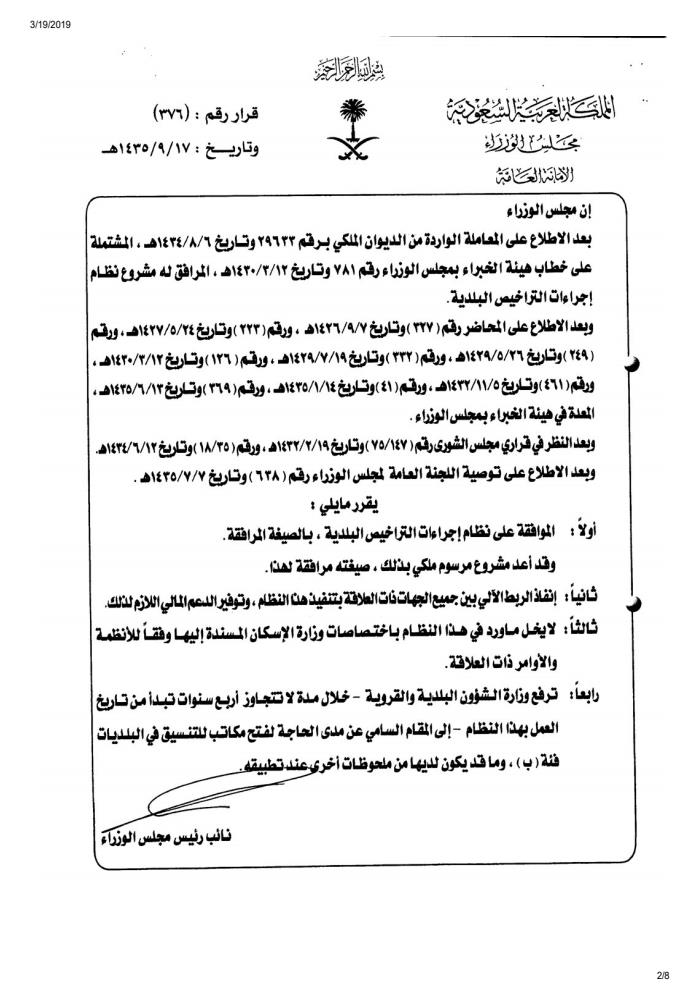 3/19/2019
بسم الله الرحمن الرحيم
المملكة العربية السعودية
مجلس الوزراء
الأمانة العامة
قرار رقم : (٣٧٦)
وتاريخ : ١٤٣٥/٩/١٧هـ
إن مجلس الوزراء
بعد الاطلاع على المعاملة الواردة من الديوان الملكي برقم ٢٩٦٣٣ وتاريخ ١٤٣٤/٨/٦هـ ، المشتملة
على خطاب هيئة الخبراء بمجلس الوزراء رقم ٧٨١ وتاريخ ١٤٣٠/٣/١٢هـ ، المرافق له مشروع نظام
إجراءات التراخيص البلدية.
وبعد الاطلاع على المحاضر رقم (٣٢٧) وتاريخ ١٤٢٦/٩/٧هـ ، ورقم (٢٢٣) وتاريخ ١٤٢٧/٥/٢٤هـ ، ورقم
(٢٤٩) وتاريخ ١٤٢٩/٥/٢٦هـ ، ورقم (٣٣٢) وتاريخ ١٤٢٩/٧/١٩هـ ، ورقم (١٢٦) وتاريخ ١٤٣٠/٣/١٢هـ ،
ورقم (٤٦١) وتاريخ ١٤٣٢/١١/٥هـ ، ورقم (٤١) وتاريخ ١٤٣٥/١/١٤هـ ، ورقم (٣٦٩) وتاريخ ١٤٣٥/٦/١٣هـ ،
المعدة في هيئة الخبراء بمجلس الوزراء .
وبعد النظر في قراري مجلس الشورى رقم (٧٥/١٤٧) وتاريخ ١٤٣٢/٢/١٩هـ ، ورقم (١٨/٣٥) وتاريخ ١٤٣٤/٦/١٢هـ.
وبعد الاطلاع على توصية اللجنة العامة لمجلس الوزراء رقم (٦٣٨) وتاريخ ١٤٣٥/٧/٧هـ .
يقرر مايلي :
أولاً : الموافقة على نظام إجراءات التراخيص البلدية ، بالصيغة المرافقة.
وقد أعد مشروع مرسوم ملكي بذلك ، صيغته مرافقة لهذا.
ثانياً : إنفاذ الربط الآلي بين جميع الجهات ذات العلاقة بتنفيذ هذا النظام ، وتوفير الدعم المالي اللازم لذلك.
ثالثاً : لايخل ماورد في هذا النظام باختصاصات وزارة الإسكان المسندة إليها وفقاً للأنظمة
والأوامر ذات العلاقة.
رابعاً : ترفع وزارة الشؤون البلدية والقروية - خلال مدة لا تتجاوز أربع سنوات تبدأ من تاريخ
العمل بهذا النظام - إلى المقام السامي عن مدى الحاجة لفتح مكاتب للتنسيق في البلديات
فئة (ب) ، وما قد يكون لديها من ملحوظات أخرى عند تطبيقه.
نائب رئيس مجلس الوزراء
2/8